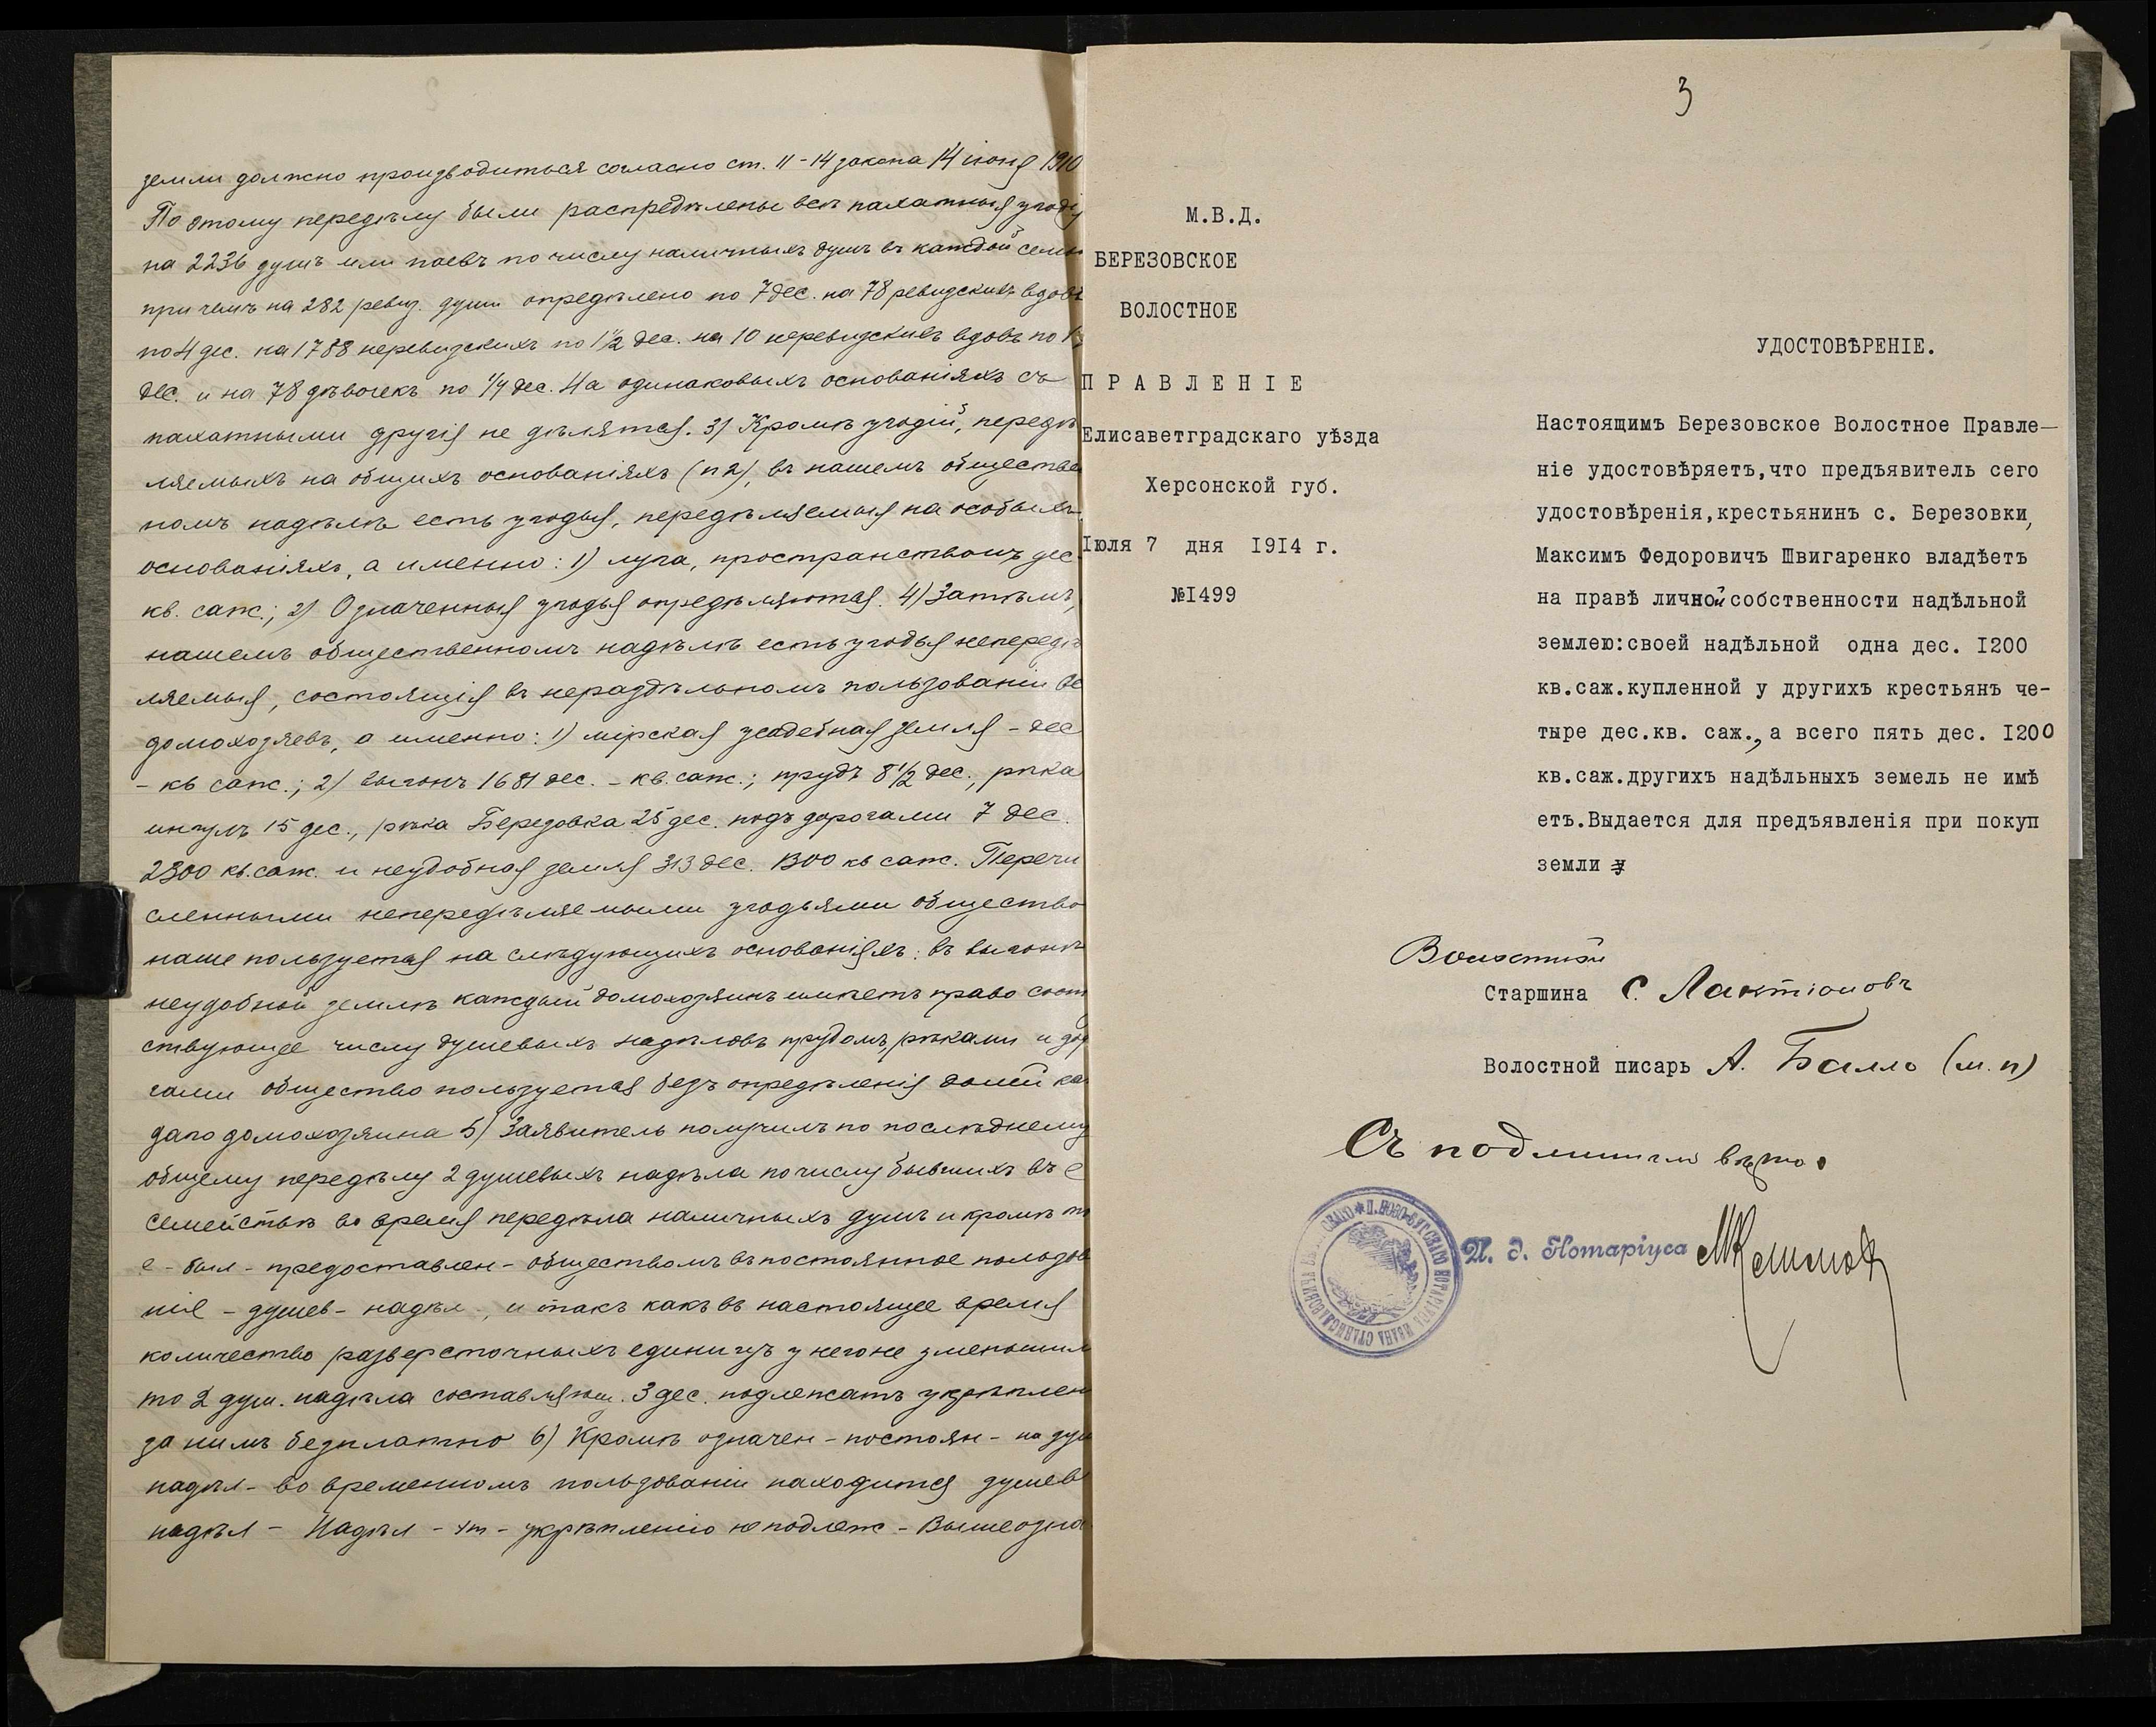 земли должно производиться согласно ст. 11-14 закона 14 іюня 1910
По этому передѣлу были распредѣлены всѣ пахатныя угодія
на 2236 душъ или паевъ по числу наличныхъ душъ въ каждой семьѣ
при чемъ на 282 ревиз. души опредѣлено по 7 дес. на 78 ревизскихъ вдовъ
по 4 дес. на 1788 неревизскихъ по 1½ дес. на 10 неревизскихъ вдовъ по
дес. и на 78 дѣвочекъ по ¼ дес. На одинаковыхъ основаніяхъ съ
пахатными другія не дѣлятся. 3) Кромѣ угодій, передѣ
ляемыхъ на общихъ основаніяхъ (п 2), въ нашемъ обществен
номъ надѣлѣ есть угодья, передѣляемыя на особыхъ
основаніяхъ, а именно: 1) луга, пространствомъ дес.
кв. саж.; 2) Означенныя угодья опредѣляются. 4) Затѣмъ,
нашемъ общественномъ надѣлѣ есть угодья непередѣ
ляемыя, состоящія въ нераздѣльномъ пользованіи вс
домохозяевъ, а именно: 1) мірская усадебная земля - дес
- кв саж.; 2) выгонъ 1681 дес. - кв. саж.; прудъ 8½ дес., рѣка
ингулъ 15 дес., рѣка Березовка 25 дес. подъ дорогами 7 дес.
2300 кв. саж. и неудобная земля 313 дес. 1300 кв саж. Перечи
сленными непередѣляемыми угодьями общество
наше пользуется на слѣдующихъ основаніяхъ: въ выгонѣ
неудобной землѣ каждый домохозяинъ имѣетъ право соот
ствующее числу душевыхъ надѣловъ прудомъ, рѣками и дор
гами общество пользуется безъ опредѣленія долей ка
даго домохозяина 5) Заявитель получилъ по послѣднему
общему передѣлу 2 душевыхъ надѣла по числу бывшихъ въ е
семействѣ во время передѣла наличныхъ душъ и кромѣ то
е - был - предоставлен - обществомъ въ постоянное пользов
ніе - душев - надѣл -, и такъ какъ въ настоящее время
количество разверсточныхъ единицъ у него не уменьшил
то 2 душ. надѣла составляющ. 3 дес. подлежатъ укрѣплен
за нимъ безплатно 6) Кромѣ означен - постоян - на душ
надѣл - во временномъ пользованіи находится душев
надѣл - Надѣл - эт - укрѣпленію не подлеж - Вышеозна
3
М.В.Д.
БЕРЕЗОВСКОЕ
ВОЛОСТНОЕ
ПРАВЛЕНІЕ
Елисаветградскаго уѣзда
Херсонской губ.
Іюля 7 дня 1914 г.
№1499
УДОСТОВѢРЕНІЕ.
Настоящимъ Березовское Волостное Правле-
ніе удостовѣряетъ,что предъявитель сего
удостовѣренія,крестьянинъ с. Березовки,
Максимъ Федоровичъ Швигаренко владѣетъ
на правѣ личной собственности надѣльной
землею:своей надѣльной одна дес. 1200
кв.саж.купленной у другихъ крестьянъ че-
тыре дес.кв. саж., а всего пять дес. 1200
кв.саж.других​ъ надѣльныхъ земель не имѣ
етъ.Выдается для предъявленія при покуп
земли у
Волостной
Старшина С. Лактіоновъ
Волостной писарь А. Балло (м. п)
Съ подлиннымъ вѣрно.
И. д. Нотаріуса